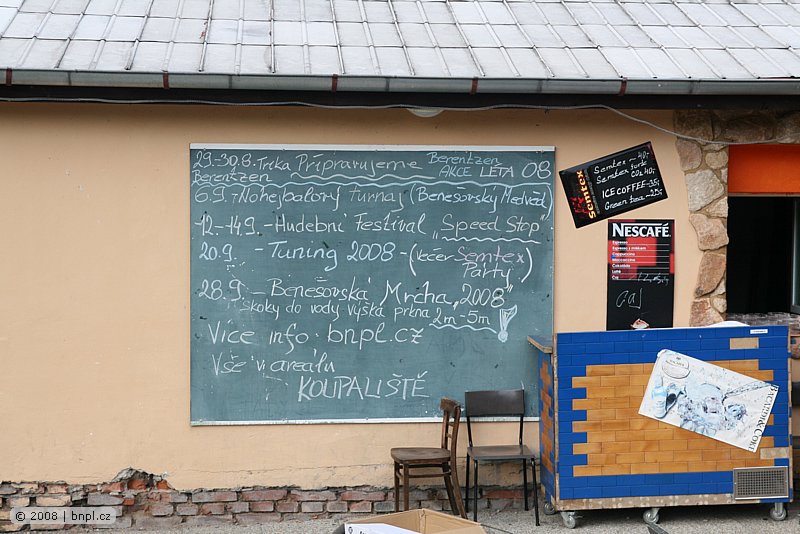 29.-30.8. Trka Připravujeme Berentzen
Berentzen AKCE LÉTA 08
6.9. Nohejbalový turnaj (Benešovský Medvěd)
12.-14.9. - Hudební Festival „Speed Stop"
20.9. - Tuning 2008 - (večer Semtex
Party)
28.9. - Benešovská Mrcha „2008"
skoky do vody výška prkna 2m - 5m !
Více info. bnpl.cz
Vše v areálu
KOUPALIŠTĚ
Semtex
Semtex - 40,-
Semtex forte
CO2 40,-
ICE COFFEE - 35,-
Green tea - 25,-
NESCAFÉ
Espresso
Espresso s mlékem
Cappuccino
Moccaccino
Čokoláda
Latté
Čaj
BACARDI & COKE
© 2008 | bnpl.cz